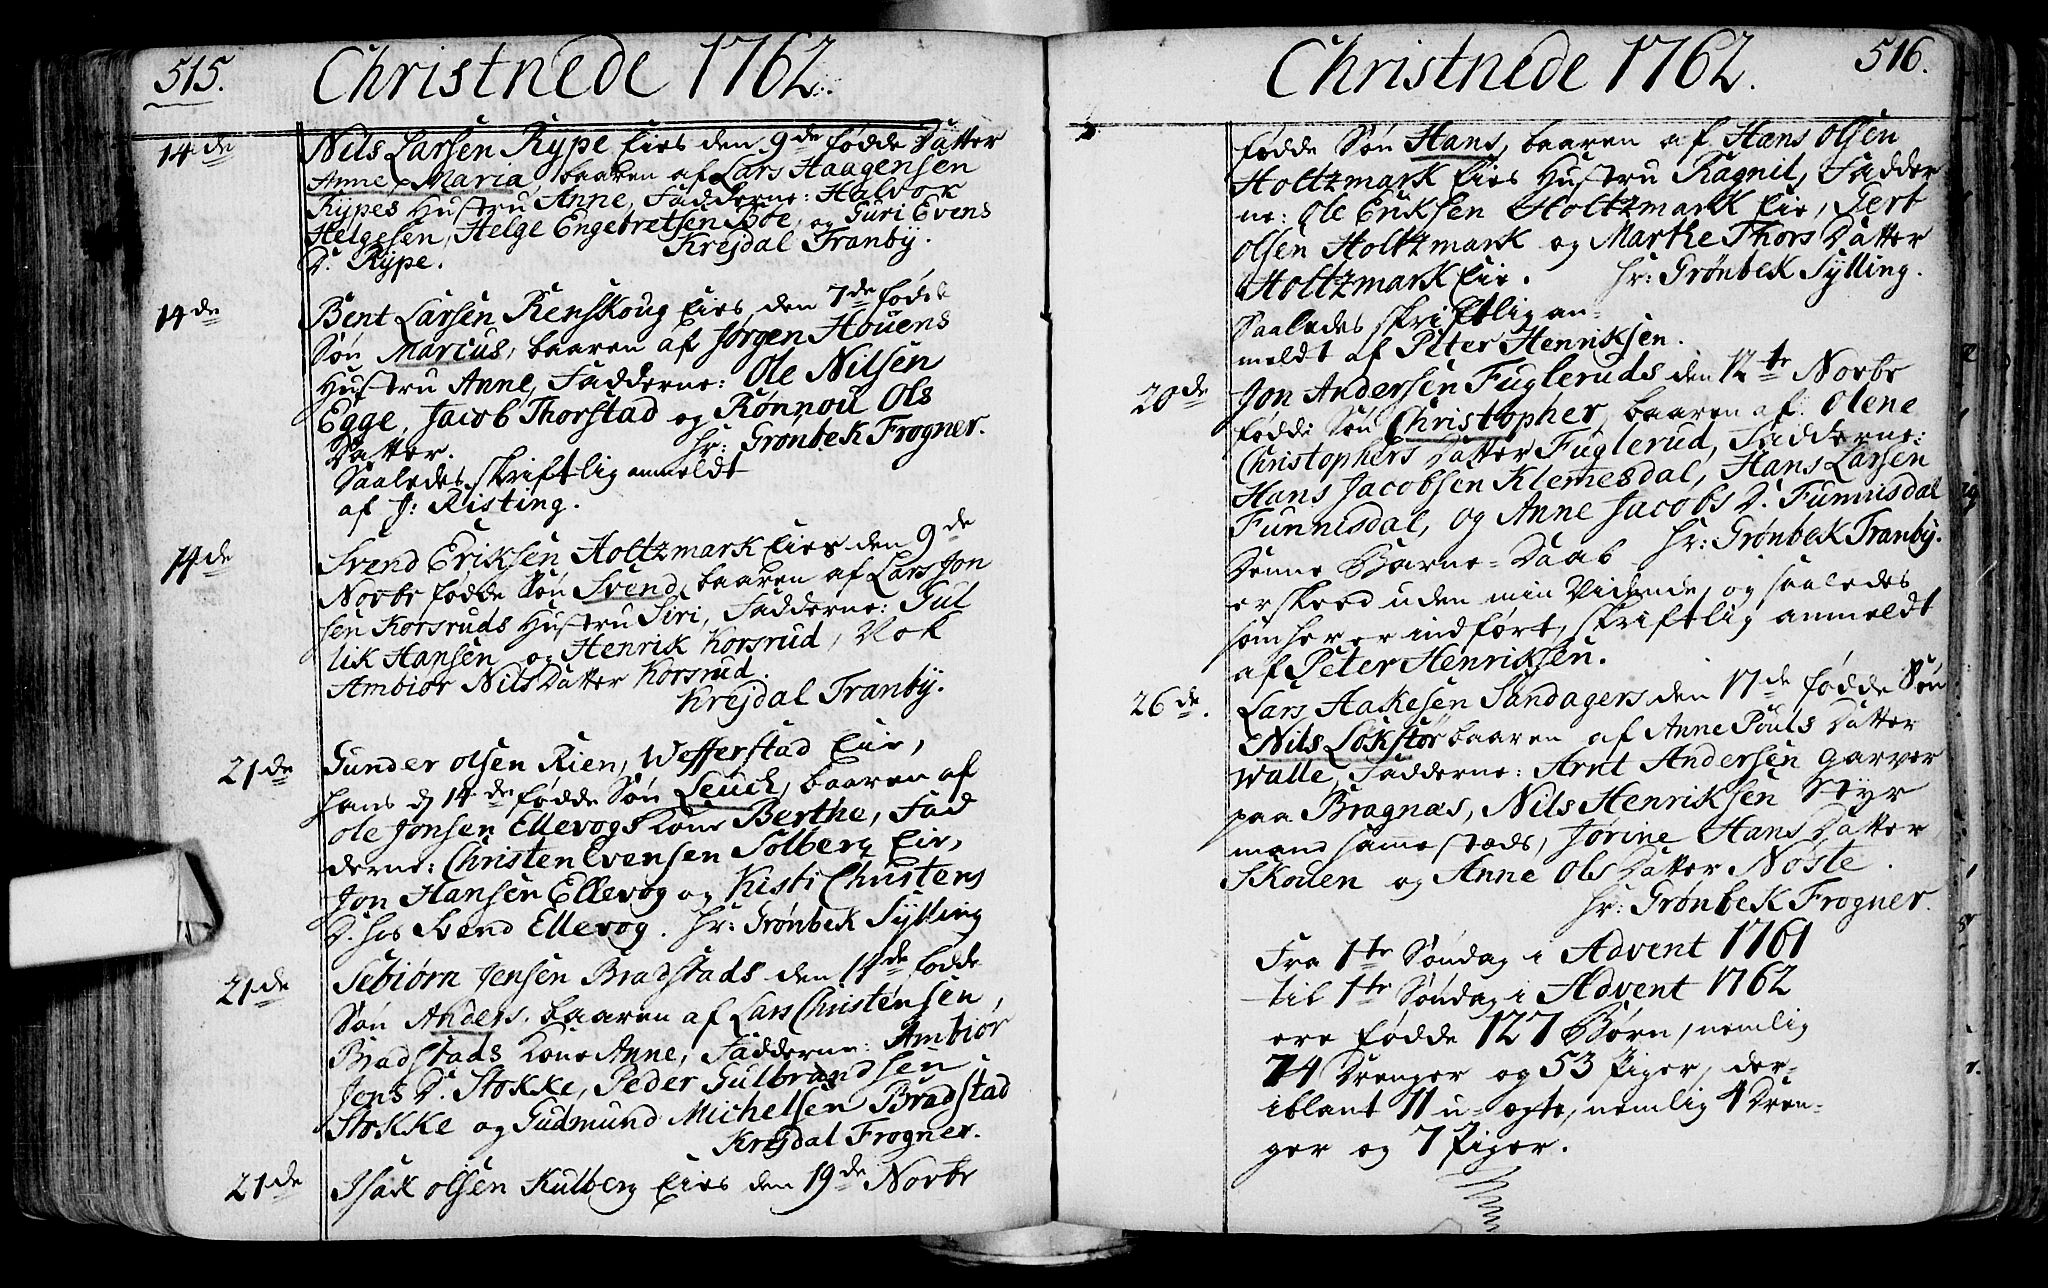 515.
Christnede 1762.
14de Nils Larsen Rype Eies den 9de fødde Datter
Anne Maria, baaren af Lars Haagensen
Rypes Hustru Anne, Fadderne: Halvor
Helgesen, Helge Engebretsen Bøe, og Guri Evens
D. Rype. Krejdal Tranby.
14de Bent Larsen Renskoug Eies den 7de fødde
Søn Marcus, baaren af Jørgen Houens
Hustru Anne, Fadderne: Ole Nilsen
Egge, Jacob Thorstad og Rønnou Ols
Datter. Hr: Grønbek Frogner.
Saaledes skriftlig anmeldt
af J: Risting.
14de Svend Eriksen Holtzmark Eies den 9de
Novbr fødde Søn Svend, baaren af Lars Jon
sen Korsruds Hustru Siri, Fadderne: Gul
lik Hansen og Henrik Korsrud, Nok
Ambiør Nils Datter Korsrud.
Krejdal Tranby.
21de Gunder Olsen Rien, Wefferstad Eie,
hans d 14de fødde Søn Leuch, baaren af
Ole Jonsen Ellevogs Kone Berthe, Fad
derne: Christen Evensen Solberg Eie,
Jon Hansen Ellevog og Kisti Christens
D. hos Svend Ellevog. Hr: Grønbek Sylling
21de Sebiørn Jensen Bradstads den 14de fødde
Søn Anders, baaren af Lars Christensen,
Bradstads Kone Anne, Fadderne: Ambiør
Jens D. Stokke, Peder Gulbrandsen
Stokke og Gudmund Michelsen Bradstad
Krejdal Frogner.
21de Isak Olsen Kulberg Eies den 19de Novbr
Christnede 1762.
516.
fødde Søn Hans, baaren af Hans Olsen
Holtzmark Eies Hustru Ragnil, Fadder
ne: Ole Eriksen Holtzmark Eie, Gert
Olsen Holtzmark og Marthe Thors Datter
Holtzmark Eie. Hr: Grønbek Sylling.
Saaledes skriftlig an-
meldt af Peter Henriksen.
20de Jon Andersen Fugleruds den 12te Novbr
fødde Søn Christopher, baaren af Olene
Christophers Datter Fuglerud, Fadderne:
Hans Jacobsen Klemesdal, Hans Larsen
Funnisdal, og Anne Jacobs D. Funnisdal
Hr: Grønbek Tranby.
Denne Barne-Daab
er skeed uden min Vidende, og saaledes
som her er indført, skriftlig anmeldt
af Peter Henriksen.
26de. Lars Aakesen Sandagers den 17de fødde Søn
Nils Lokstør baaren af Anne Pouls Datter
Walle, Fadderne: Arnt Andersen Garver
paa Bragnæs, Nils Henriksen Styr
mand sammestæds, Jørine Hans Datter
Skouen og Anne Ols Datter Nøste.
Hr: Grønbek Frogner.
Fra 1te Søndag i Advent 1761
til 1te Søndag i Advent 1762
ere fødde 127 Børn, nemlig
74 Drenger og 53 Piger, der-
iblant 11 u-ægte, nemlig 4 Dren-
ger og 7 Piger.